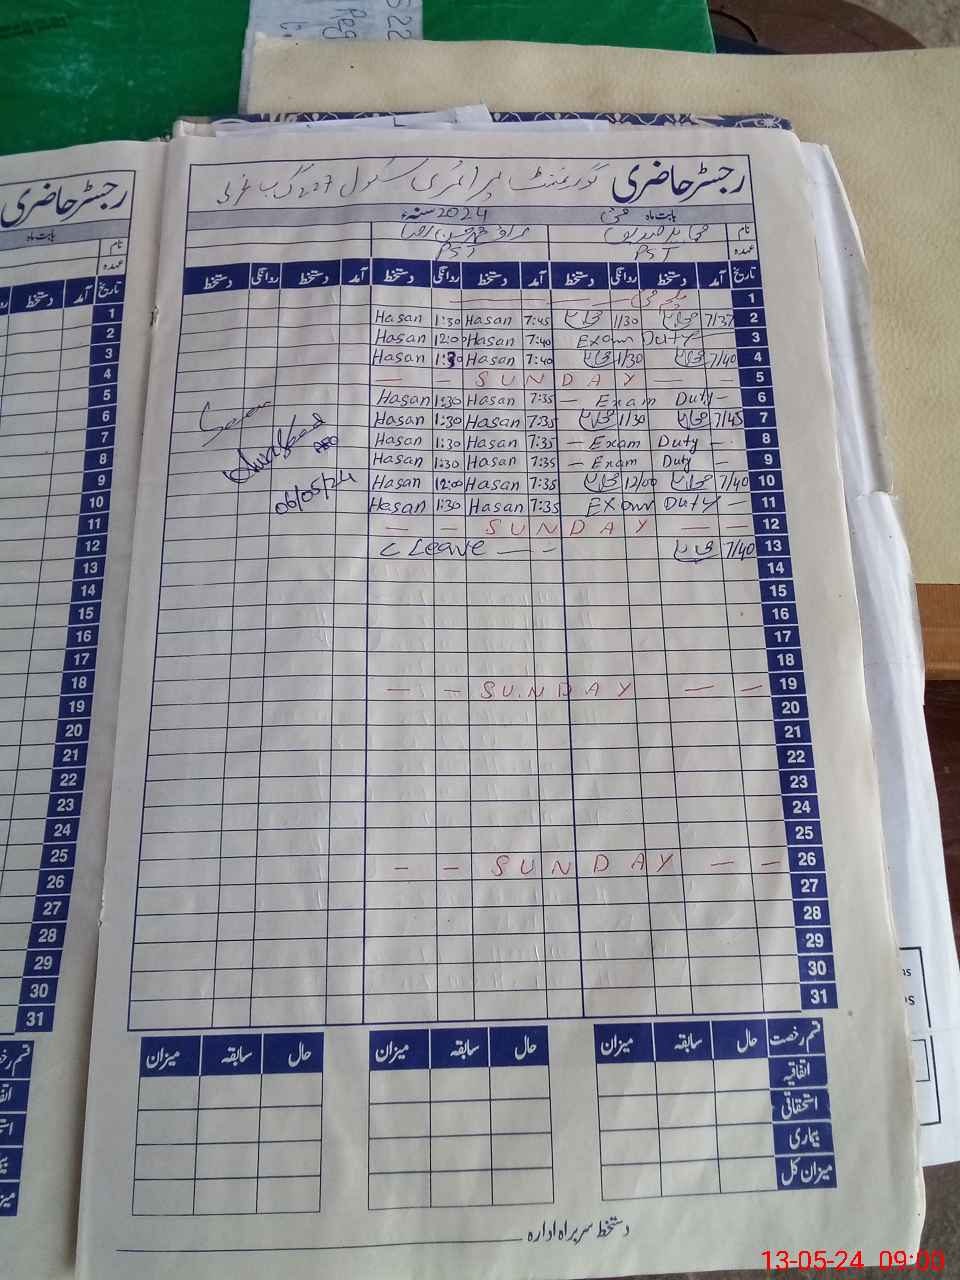 رجسٹر حاضری گورنمنٹ پرائمری سکول 227 گ ب غربی
بابت ماہ مئی 2024 سنہء
نام
عہدہ PST PST
تاریخ آمد دستخط روانگی دستخط آمد دستخط روانگی دستخط آمد دستخط روانگی دستخط
1 یکم مئی
2 7/37 1/30 7:45 Hasan 1:30 Hasan
3 Exam Duty 7:40 Hasan 12:00 Hasan
4 7/40 1/30 7:40 Hasan 1:30 Hasan
5 — — SUNDAY — —
6 — Exam Duty — 7:35 Hasan 1:30 Hasan
7 7/45 1/30 7:35 Hasan 1:30 Hasan
8 — Exam Duty — 7:35 Hasan 1:30 Hasan
9 — Exam Duty — 7:35 Hasan 1:30 Hasan
10 7/40 12/00 7:35 Hasan 12:00 Hasan
11 Exam Duty — 7:35 Hasan 1:30 Hasan
12 — — SUNDAY — —
13 7/40 C Leave — —
14
15
16
17
18
19 — — SUNDAY — —
20
21
22
23
24
25
26 — — SUNDAY — —
27
28
29
30
31
Seen
AEO
06/05/24
قسم رخصت حال سابقہ میزان حال سابقہ میزان حال سابقہ میزان
اتفاقیہ
استحقاقی
بیماری
میزان کل
دستخط سربراہ ادارہ
رجسٹر حاضری
بابت ماہ
نام
عہدہ
تاریخ آمد دستخط
1
2
3
4
5
6
7
8
9
10
11
12
13
14
15
16
17
18
19
20
21
22
23
24
25
26
27
28
29
30
31
13-05-24 09:00